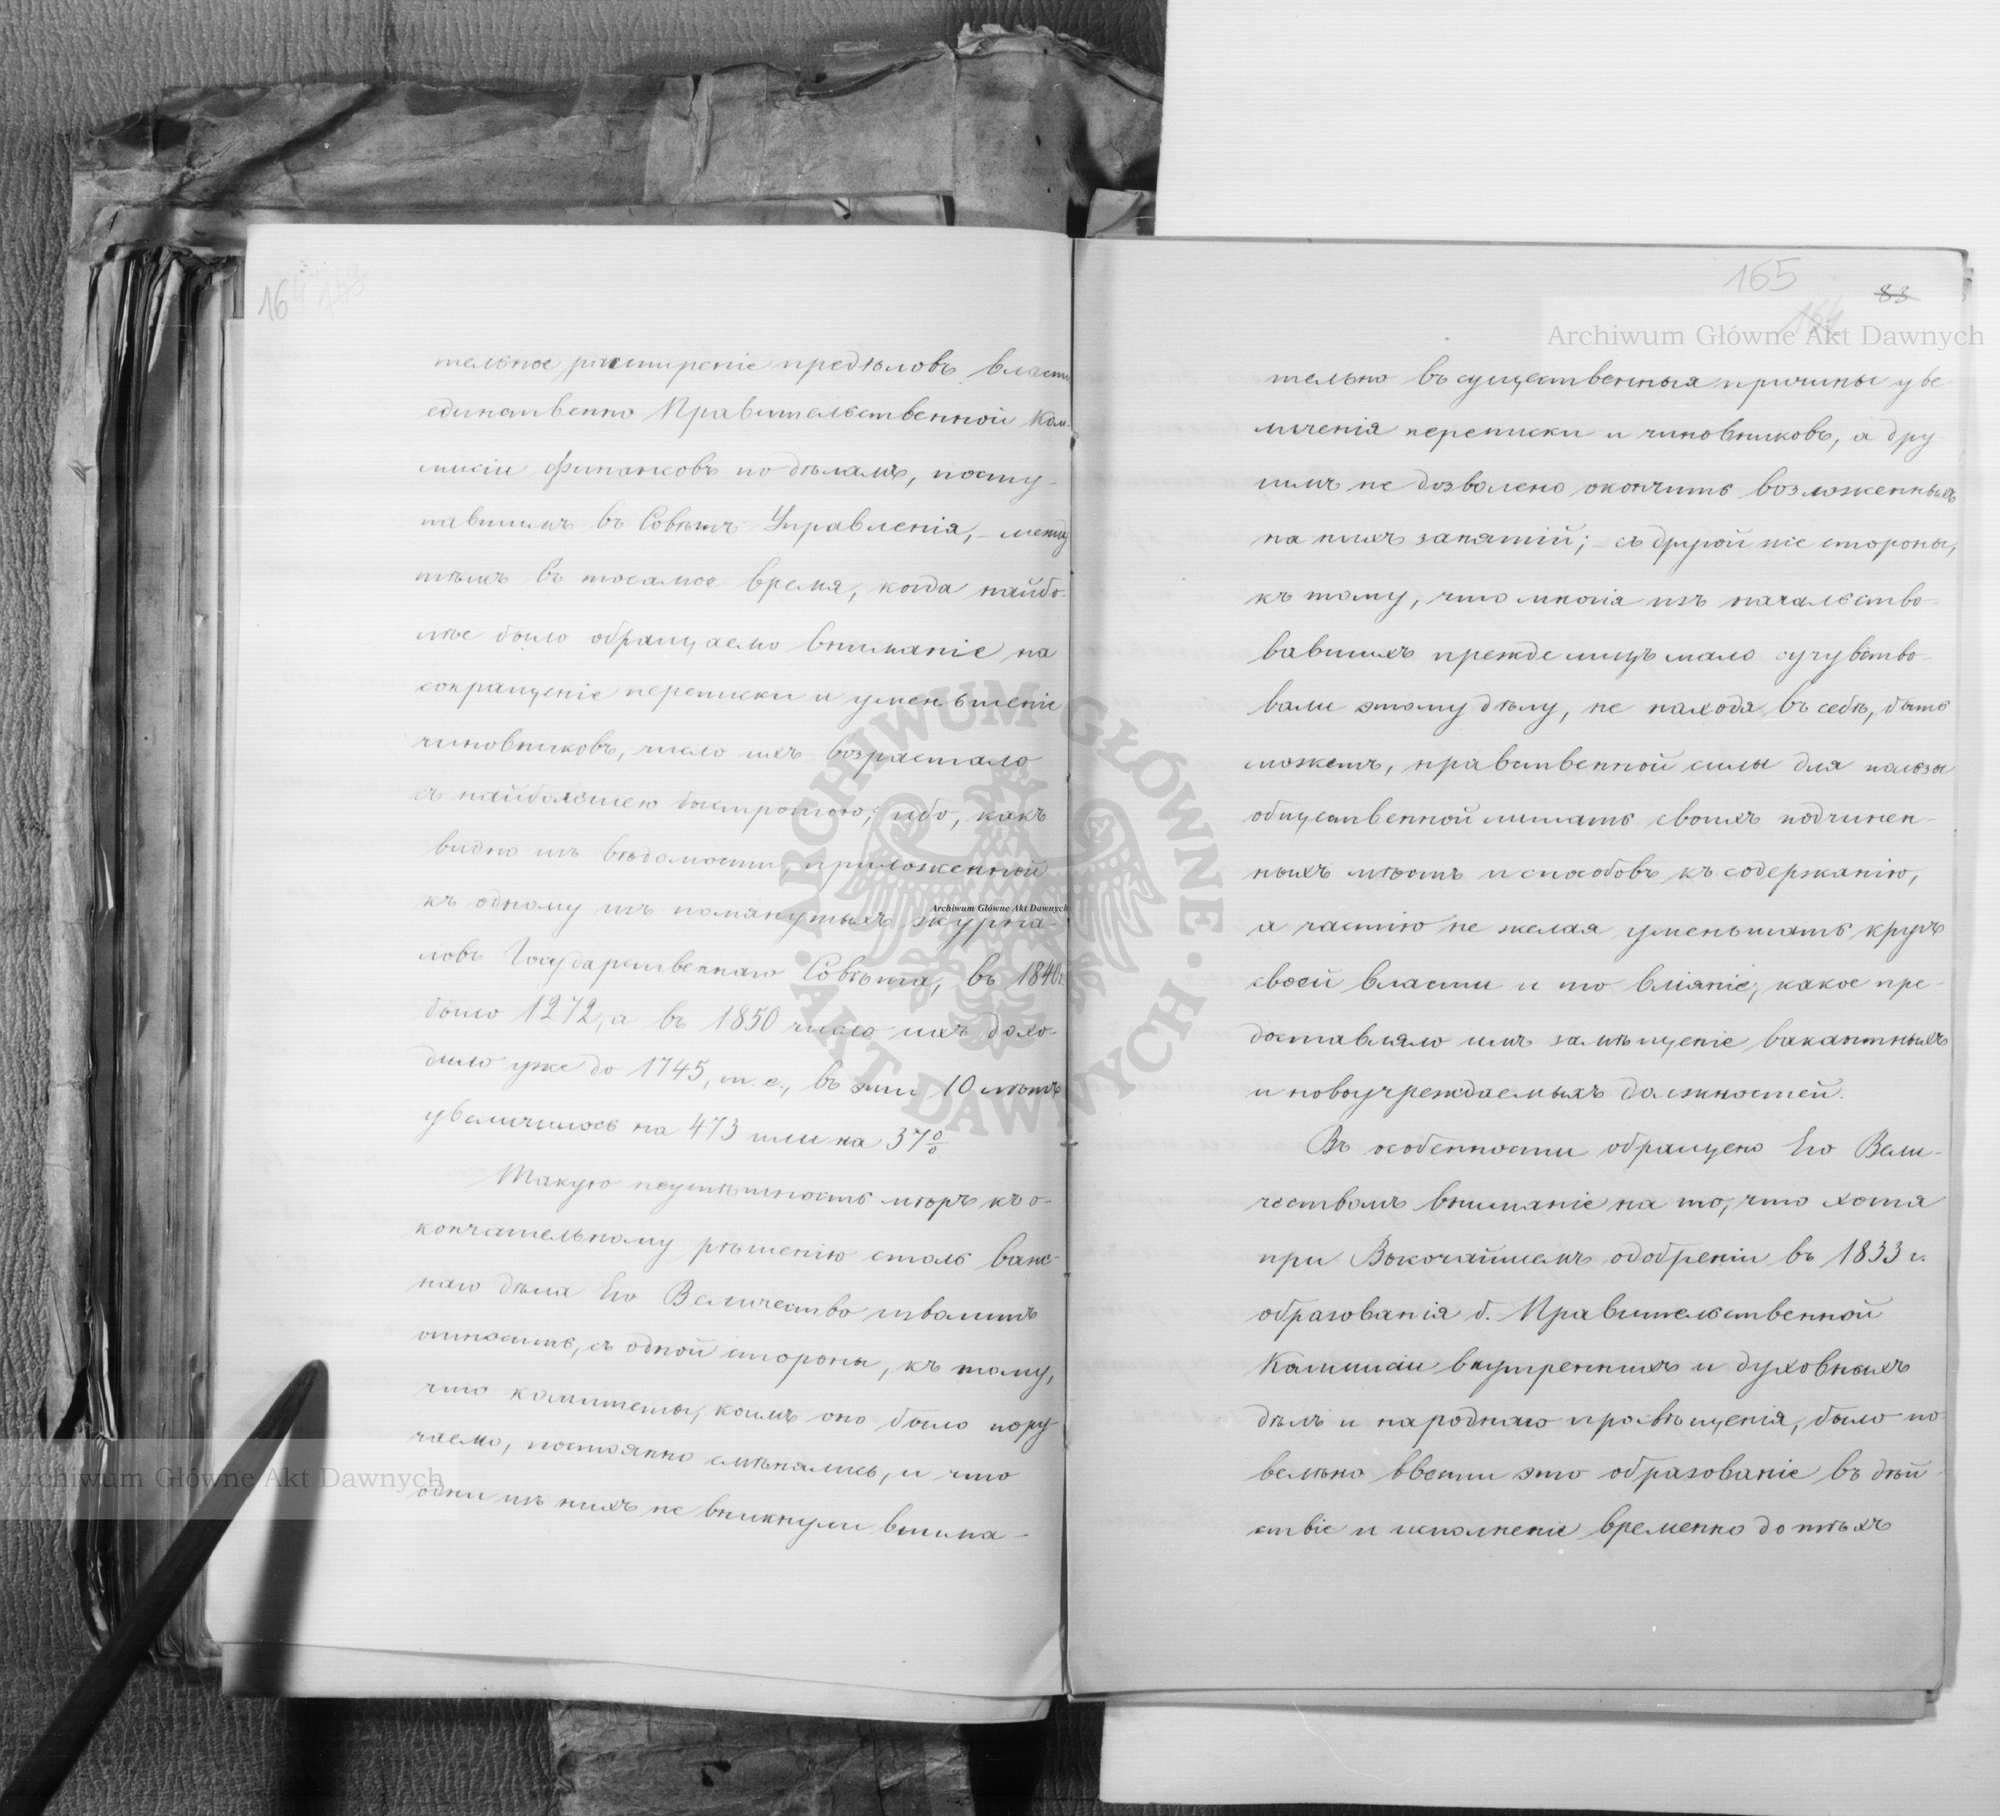 164
тельное расширеніе предѣловъ власти
единственно Правительственной Ком-
мисіи Финансовъ по дѣламъ, посту-
павшимъ въ Совѣтъ Управленія, - между
тѣмъ въ тосамое время, когда наибо-
лѣе было обращаемо вниманіе на
сокращеніе переписки и уменьшеніе
чиновниковъ, число ихъ возрастало
съ наибольшею быстротою; ибо, какъ
видно изъ вѣдомости, приложенной
къ одному изъ помянутыхъ журна-
ловъ Государственнаго Совѣта, въ 1840 г.
было 1272, а въ 1850 число ихъ дохо-
дило уже до 1745, т. е., въ эти 10 лѣтъ
увеличилось на 473 или на 37%.
Такую неуспѣшность мѣръ къ о-
кончательному рѣшенію столь важ-
наго дѣла Его Величество изволитъ
относить, съ одной стороны, къ тому,
что комитеты, коимъ оно было пору
чаемо, постоянно смѣнялись, и что
одни изъ нихъ не вникнули внима-
165
83
тельно въ существенныя причины уве-
личенія переписки и чиновниковъ, а дру
гимъ не дозволено окончить возложенныхъ
на нихъ занятій; - съ другой же стороны,
къ тому, что многія изъ начальство-
вавшихъ прежде лицъ мало сочувство-
вали этому дѣлу, не находя въ себѣ, быть
можетъ, нравственной силы для пользы
общественной лишать своихъ подчинен-
ныхъ мѣстъ и способовъ къ содержанію,
а частію не желая уменьшать кругъ
своей власти и то вліяніе, какое пре-
доставляло имъ замѣщеніе вакантныхъ
и новоучреждаемыхъ должностей.
Въ особенности обращено Его Вели-
чествомъ вниманіе на то, что хотя
при Высочайшемъ одобреніи въ 1833 г.
образованія б. Правительственной
Коммисіи внутреннихъ и духовныхъ
дѣлъ и народнаго просвѣщенія, было по
велѣно ввести это образованіе въ дѣй-
ствіе и исполненіе временно до тѣхъ
Archiwum Główne Akt Dawnych
Archiwum Główne Akt Dawnych
Archiwum Główne Akt Dawnych
ARCHIWUM GŁÓWNE · AKT DAWNYCH ·